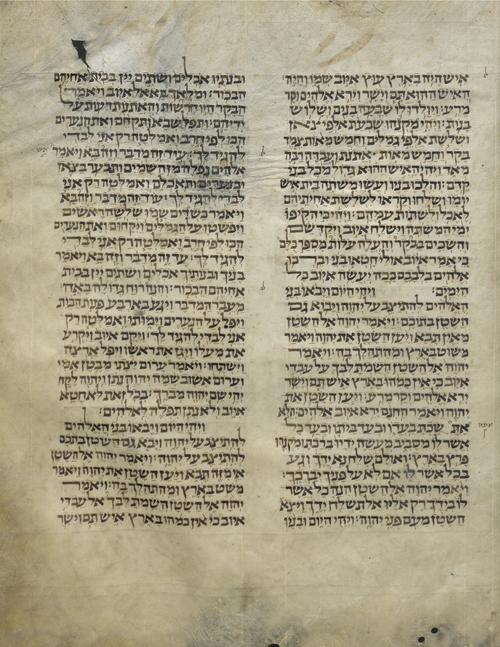 איש היה בארץ עוץ איוב שמו והיה
האיש ההוא תם וישר וירא אלהים וסר
מרע: ויולדו לו שבעה בנים ושלוש
בנות: ויהי מקנהו שבעת אלפי צאן
ושלשת אלפי גמלים וחמש מאות צמד
בקר וחמש מאות אתונות ועבדה רבה
מאד ויהי האיש ההוא גדול מכל בני
קדם: והלכו בניו ועשו משתה בית איש
יומו ושלחו וקראו לשלשת אחיתיהם
לאכל ולשתות עמהם: ויהי כי הקיפו
ימי המשתה וישלח איוב ויקדשם
והשכים בבקר והעלה עלות מספר כלם
כי אמר איוב אולי חטאו בני וברכו
אלהים בלבבם ככה יעשה איוב כל
הימים: ויהי היום ויבאו בני
האלהים להתיצב על יהוה ויבוא גם
השטן בתוכם: ויאמר יהוה אל השטן
מאין תבא ויען השטן את יהוה ויאמר
משוט בארץ ומהתהלך בה: ויאמר
יהוה אל השטן השמת לבך על עבדי
איוב כי אין כמהו בארץ איש תם וישר
ירא אלהים וסר מרע: ויען השטן את
יהוה ויאמר החנם ירא איוב אלהים: הלא
את שכת בעדו ובעד ביתו ובעד כל
אשר לו מסביב מעשה ידיו ברכת ומקנהו
פרץ בארץ: ואולם שלח נא ידך וגע
בכל אשר לו אם לא על פניך יברכך:
ויאמר יהוה אל השטן הנה כל אשר
לו בידך רק אליו אל תשלח ידך ויצא
השטן מעם פני יהוה: ויהי היום ובניו
ובנתיו אכלים ושתים יין בבית אחיהם
הבכור: ומלאך בא אל איוב ויאמר
הבקר היו חרשות והאתנות רעות על
ידיהם: ותפל שבא ותקחם ואת הנערים
הכו לפי חרב ואמלטה רק אני לבדי
להגיד לך: עוד זה מדבר וזה בא ויאמר
אלהים נפלה מן השמים ותבער בצאן
ובנערים ותאכלם ואמלטה רק אני
לבדי להגיד לך: עוד זה מדבר וזה בא
ויאמר כשדים שמו שלשה ראשים
ויפשטו על הגמלים ויקחום ואת הנערים
הכו לפי חרב ואמלטה רק אני לבדי
להגיד לך: עד זה מדבר וזה בא ויאמר
בניך ובנותיך אכלים ושתים יין בבית
אחיהם הבכור: והנה רוח גדולה באה
מעבר המדבר ויגע בארבע פנות הבית
ויפל על הנערים וימותו ואמלטה רק
אני לבדי להגיד לך: ויקם איוב ויקרע
את מעלו ויגז את ראשו ויפל ארצה
וישתחו: ויאמר ערום יצתי מבטן אמי
וערום אשוב שמה יהוה נתן ויהוה לקח
יהי שם יהוה מברך: בכל זאת לא חטא
איוב ולא נתן תפלה לאלהים:
ויהי היום ויבאו בני האלהים
להתיצב על יהוה ויבוא גם השטן בתכם
להתיצב על יהוה: ויאמר יהוה אל השטן
אי מזה תבא ויען השטן את יהוה ויאמר
משט בארץ ומהתהלך בה: ויאמר
יהוה אל השטן השמת לבך אל עבדי
איוב כי אין כמהו בארץ איש תם וישר